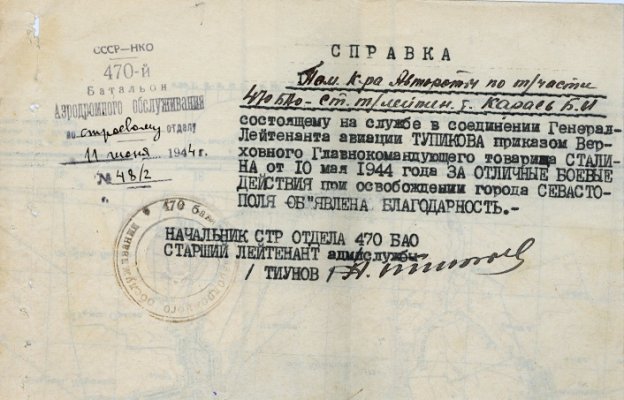 СССР—НКО
470-й
Батальон
Аэродромного обслуживания
по строевому отделу
11 июня 1944г.
№ 48/2
СПРАВКА
Пом. К-ра Автороты по т/части
470 БАО - ст. т/лейтен. т. Карась Б.И
состоящему на службе в соединении Генерал-
Лейтенанта авиации ТУПИКОВА приказом Вер-
ховного Главнокомандующего товарища СТАЛИ-
НА от 10 мая 1944 года ЗА ОТЛИЧНЫЕ БОЕВЫЕ
ДЕЙСТВИЯ при освобождении города СЕВАСТО-
ПОЛЯ ОБ"ЯВЛЕНА БЛАГОДАРНОСТЬ.-
НАЧАЛЬНИК СТР ОТДЕЛА 470 БАО
СТАРШИЙ ЛЕЙТЕНАНТ адмислужбы
/ ТИУНОВ /
470 бат. обслуживания